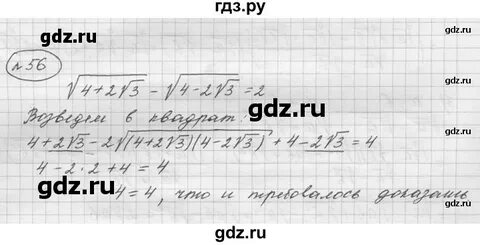 гдз.ру
№56
gdz.ru gdz.ru
√4+2√3 - √4-2√3 = 2
Возведем в квадрат:
gdz.ru gdz.ru
4+2√3 - 2√(4+2√3)(4-2√3) + 4-2√3 = 4
4 - 2·2 + 4 = 4
gdz.ru gdz.ru
4=4, что и требовалось доказать
gdz.ru gdz.ru